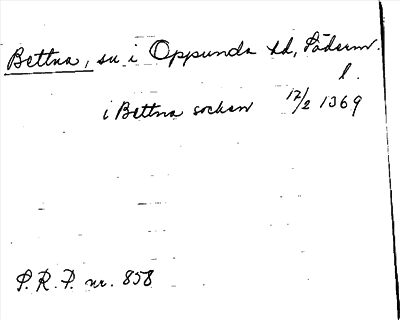 Bettna, sn i Oppunda hd, Söderm.
l.
i Bettna socken 17/2 1369
S.R.P. nr. 858